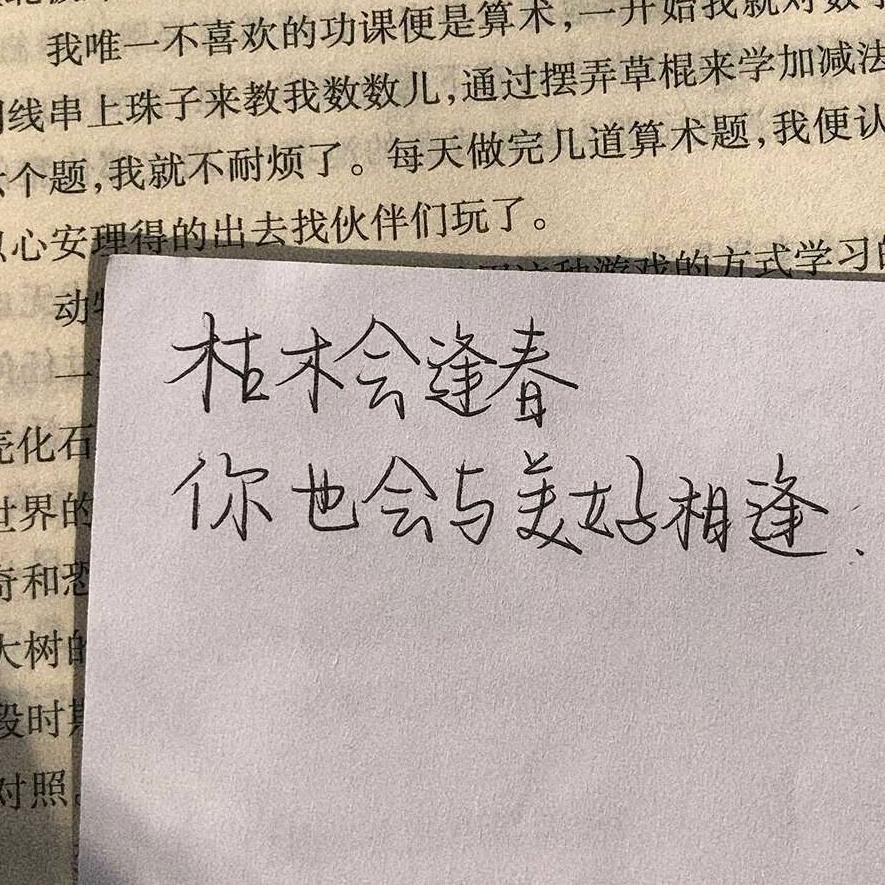 我唯一不喜欢的功课便是算术,一开始我就对数
线串上珠子来教我数数儿,通过摆弄草棍来学加减法
个题,我就不耐烦了。每天做完几道算术题,我便认
心安理得的出去找伙伴们玩了。
这种游戏的方式学习
动
一
枯木会逢春
你也会与美好相逢.
化石
世界的
奇和恐
大树的
段时期
对照。